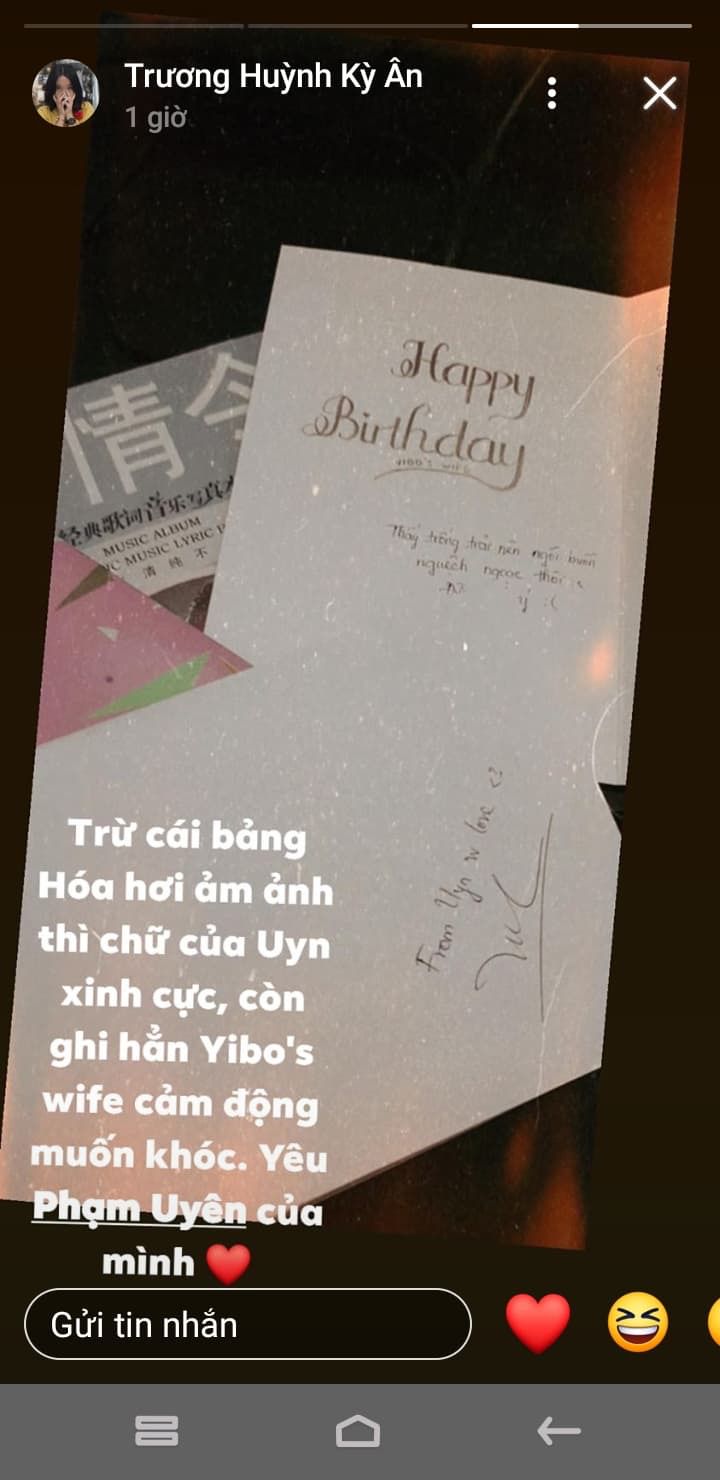 Trương Huỳnh Kỳ Ân
1 giờ
Happy
Birthday
YIBO'S WIFE
Thấy trống trải nên ngồi buồn
nguệch ngoạc thôi
ý :(
情令
经典歌词音乐写真
MUSIC ALBUM
IC MUSIC LYRIC
清 纯 不
From Uyn w love <3
Trừ cái bảng
Hóa hơi ảm ảnh
thì chữ của Uyn
xinh cực, còn
ghi hẳn Yibo's
wife cảm động
muốn khóc. Yêu
Phạm Uyên của
mình ❤️
Gửi tin nhắn